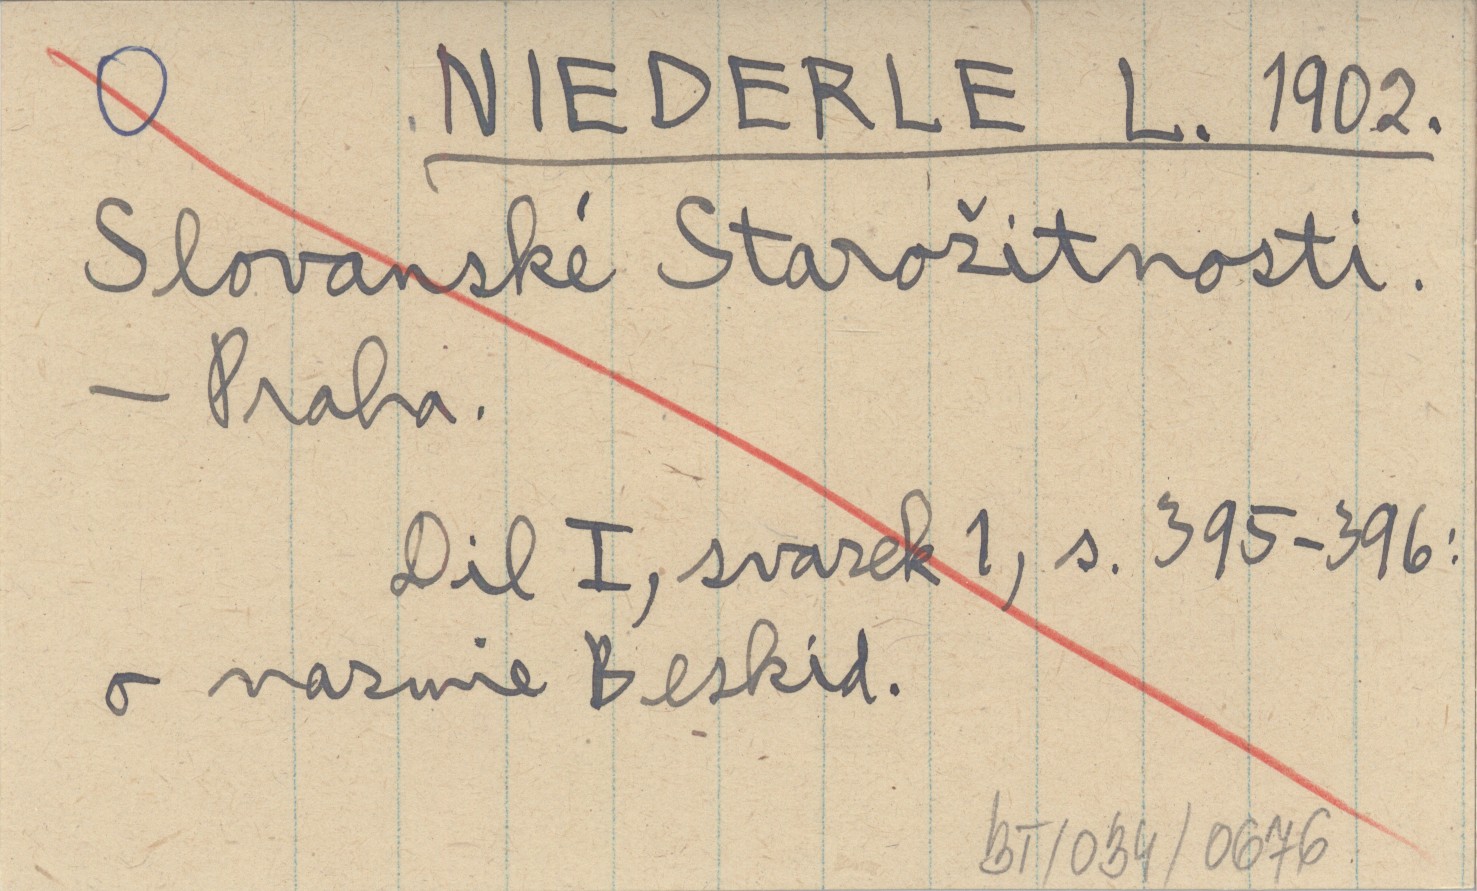 O NIEDERLE L. 1902.
Slovanské Starožitnosti.
— Praha.
Dil I, svazek 1, s. 395-396:
o nazwie Beskid.
BT/034/0676